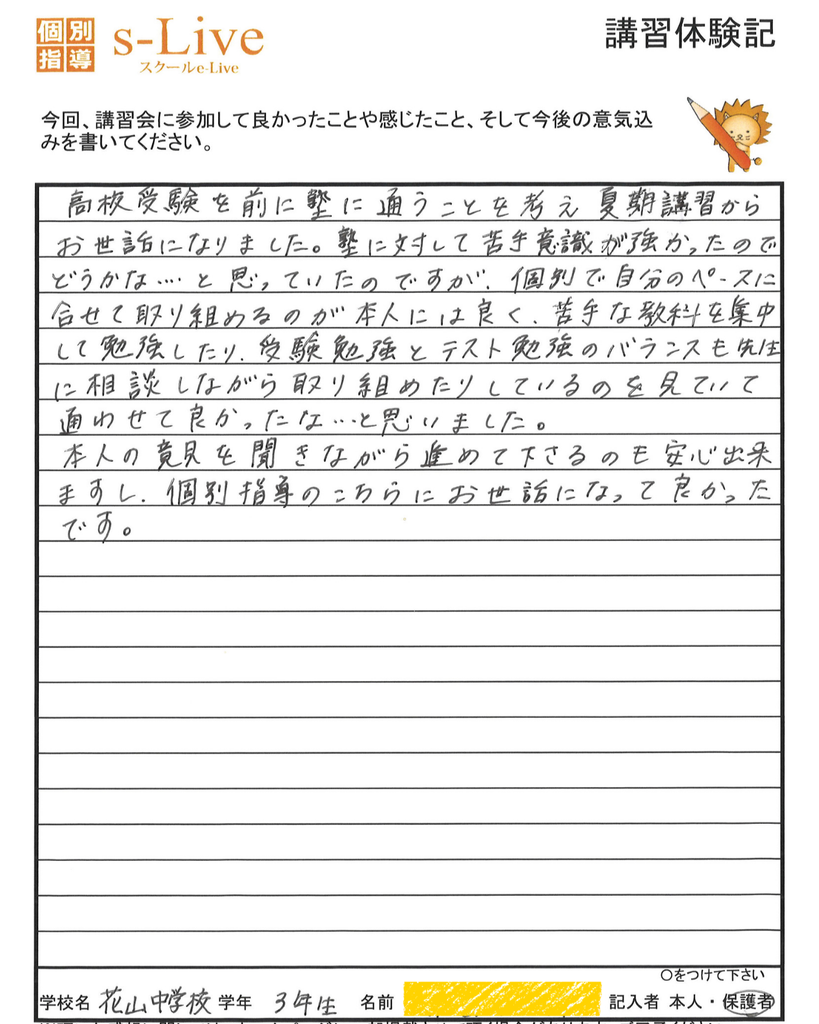 個別指導
s-Live
スクールe-Live
講習体験記
今回、講習会に参加して良かったことや感じたこと、そして今後の意気込
みを書いてください。
高校受験を前に塾に通うことを考え夏期講習から
お世話になりました。塾に対して苦手意識が強かったので
どうかな…と思っていたのですが、個別で自分のペースに
合せて取り組めるのが本人には良く、苦手な教科を集中
して勉強したり、受験勉強とテスト勉強のバランスも先生
に相談しながら取り組めたりしているのを見ていて
通わせて良かったな…と思いました。
本人の意見を聞きながら進めて下さるのも安心出来
ますし、個別指導のこちらにお世話になって良かった
です。
○をつけて下さい
学校名 花山中学校 学年 3年生 名前 記入者 本人・保護者